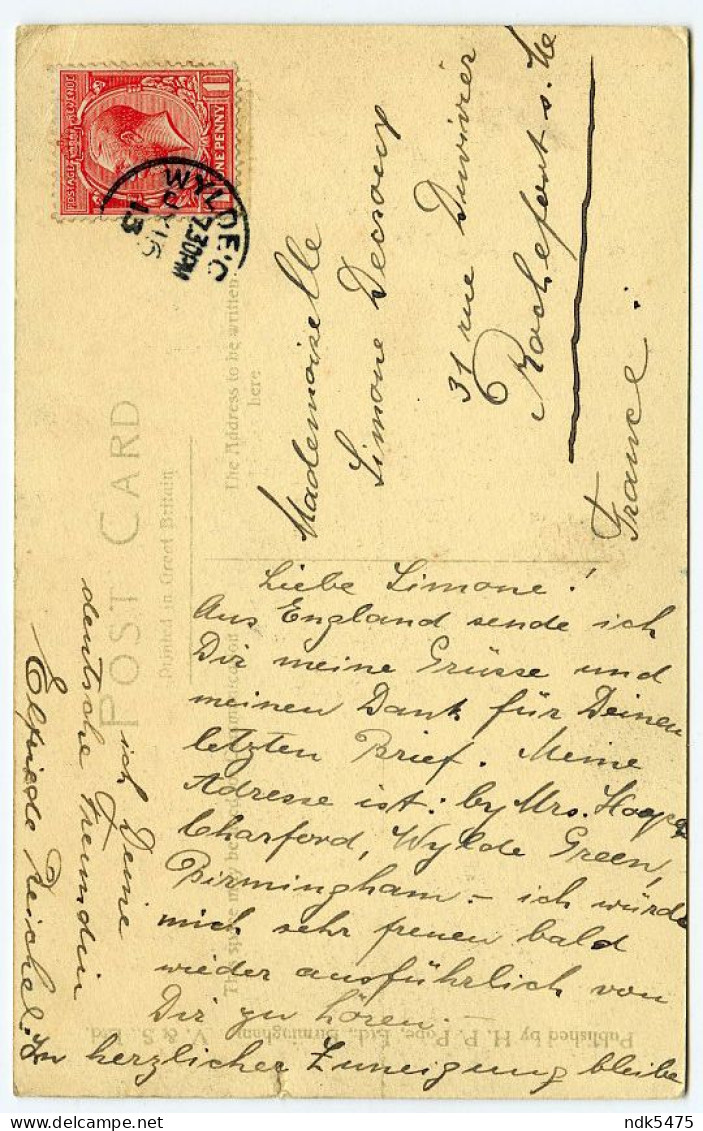 POSTAGE REVENUE
ONE PENNY
WYLDE.G
7.30PM
13
POST CARD
Printed in Great Britain
The Address to be written
here
Mademoiselle
Simone
31 rue Duvivier
Rochefort s. M
France.
Liebe Simone!
Aus England sende ich
Dir meine Grüsse und
meinen Dank für Deinen
letzten Brief. Meine
Adresse ist: by Mrs. Hooper
Charford, Wylde Green,
Birmingham – ich würde
mich sehr freuen bald
wieder ausführlich von
Dir zu hören. –
In herzlicher Zuneigung bleibe
ich Deine
deutsche Freundin
Elfriede Reichel.
Published by H. P. Pope, Ltd., Birmingham V. & S. Ltd.
ndk5475